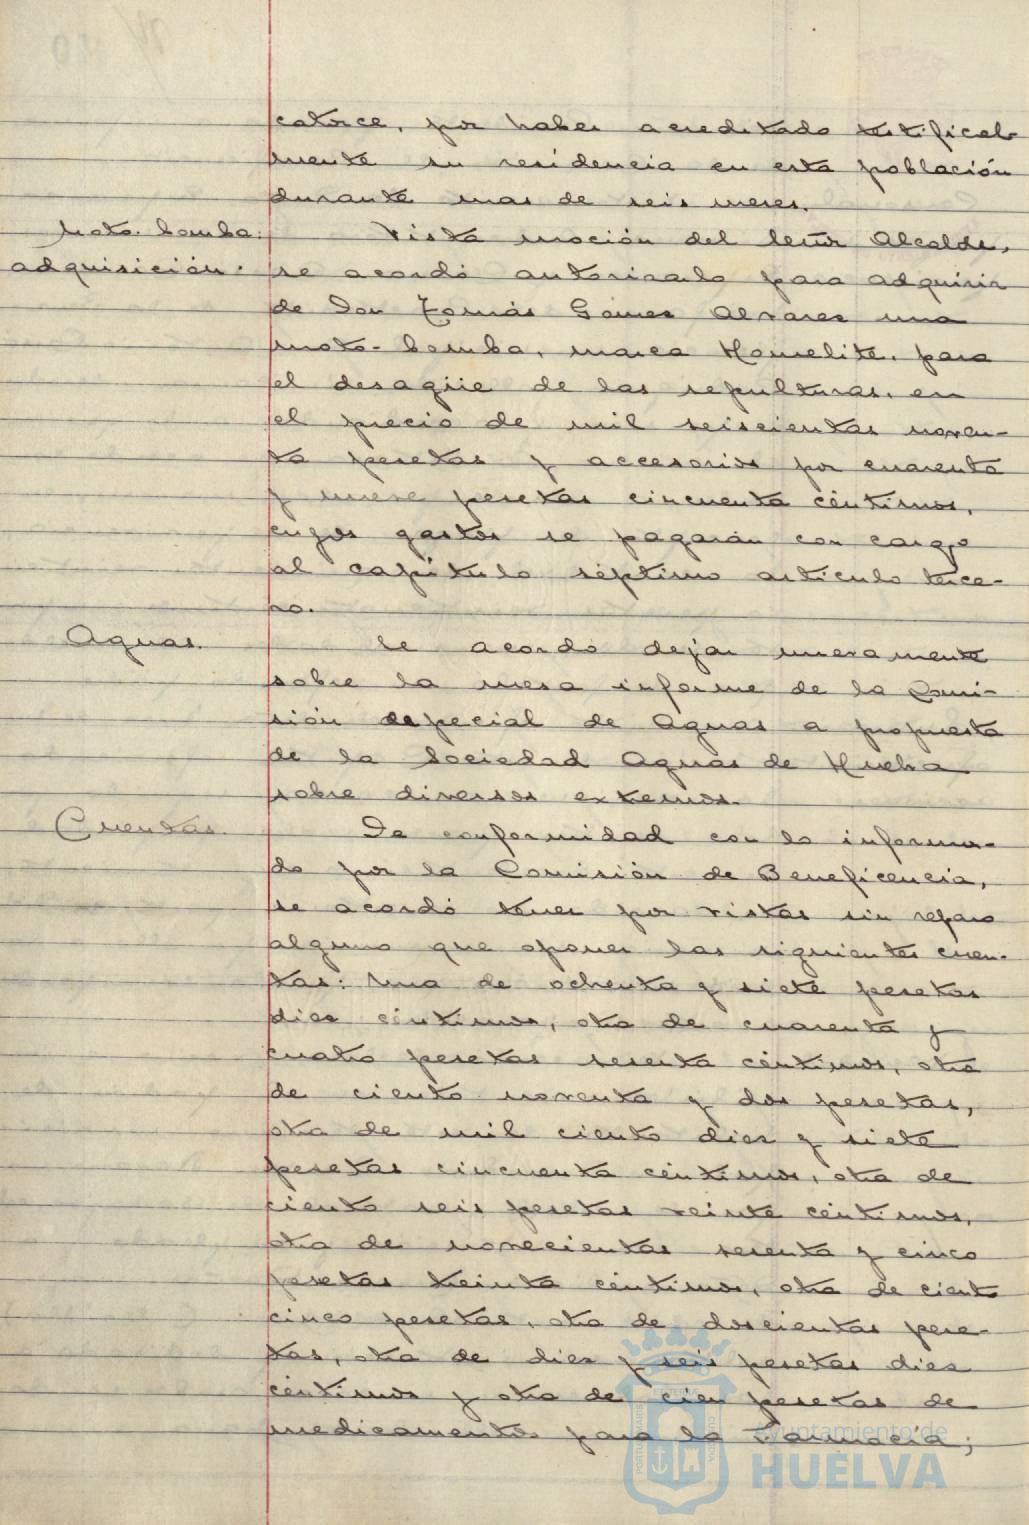 catorce, por haber acreditado testifical-
mente su residencia en esta población
durante mas de seis meses.
Moto-bomba:
adquisición.
Vista moción del Señor Alcalde,
se acordó autorizarlo para adquirir
de Don Tomás Gómez Alvarez una
moto-bomba, marca Homelite, para
el desagüe de las sepulturas, en
el precio de mil seiscientas noven-
ta pesetas y accesorios por cuarenta
y nueve pesetas cincuenta céntimos,
cuyos gastos se pagarán con cargo
al capítulo séptimo artículo terce-
ro.
Aguas.
Se acordó dejar nuevamente
sobre la mesa informe de la Comi-
sión especial de Aguas a propuesta
de la Sociedad Aguas de Huelva
sobre diversos extremos.
Cuentas.
De conformidad con lo informa-
do por la Comisión de Beneficencia,
se acordó tener por vistas sin reparo
alguno que oponer las siguientes cuen-
tas: Una de ochenta y siete pesetas
diez céntimos, otra de cuarenta y
cuatro pesetas sesenta céntimos, otra
de ciento noventa y dos pesetas,
otra de mil ciento diez y siete
pesetas cincuenta céntimos, otra de
ciento seis pesetas veinte céntimos,
otra de novecientas sesenta y cinco
pesetas treinta céntimos, otra de ciento
cinco pesetas, otra de doscientas pese-
tas, otra de diez y seis pesetas diez
céntimos y otra de cien pesetas de
medicamentos para la Farmacia;
Ayuntamiento de
HUELVA